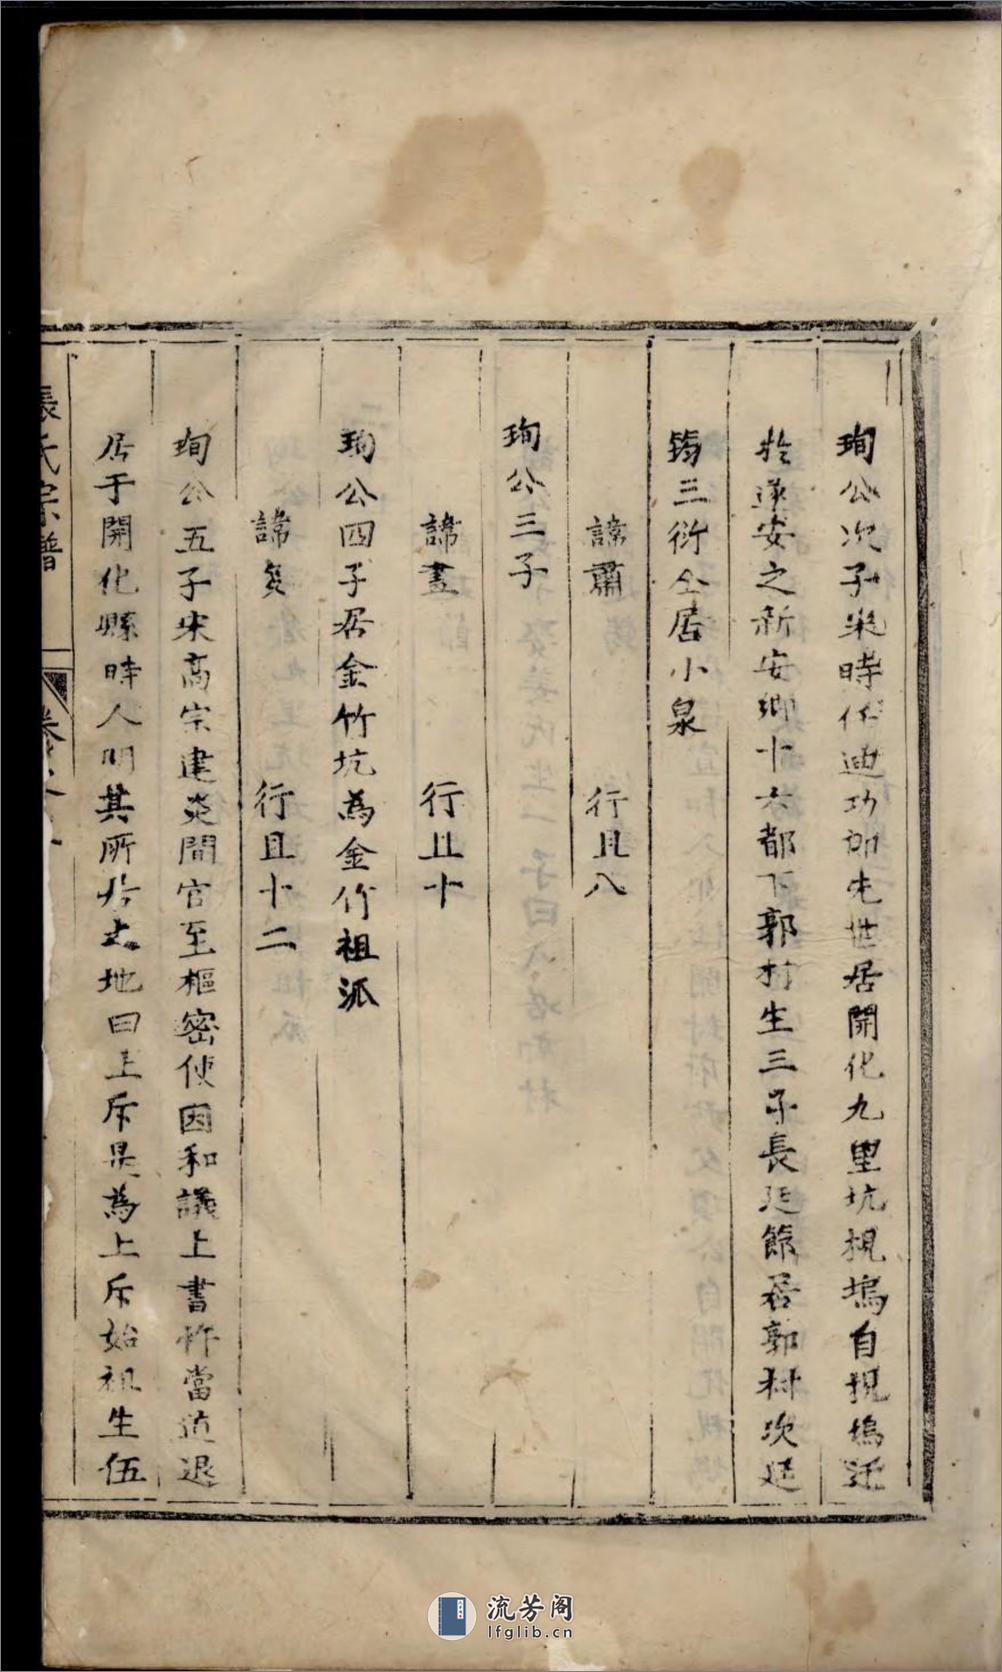 珣公次子宋時仕迪功郎先世居開化九里坑枧塢自枧塢迁
於遂安之新安鄉十六都下郭村生三子長廷節居郭村次廷
筠三衍仝居小泉
諱肅 行且八
珣公三子
諱晝 行且十
珣公四子居金竹坑為金竹祖派
諱 行且十二
珣公五子宋高宗建炎間官至樞密使因和議上書忤當道退
居于開化縣時人明其所居之地曰上斥是為上斥始祖生伍
張氏宗譜 卷之
流芳阁
lfglib.cn